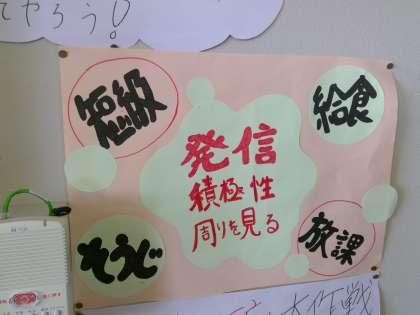 てやろう!
短級
給食
発信
積極性
周りを見る
そうじ
放課
大作戦